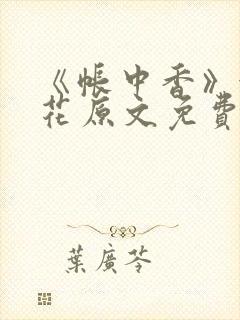 《帳中香》
花原文免費
葉廣芩